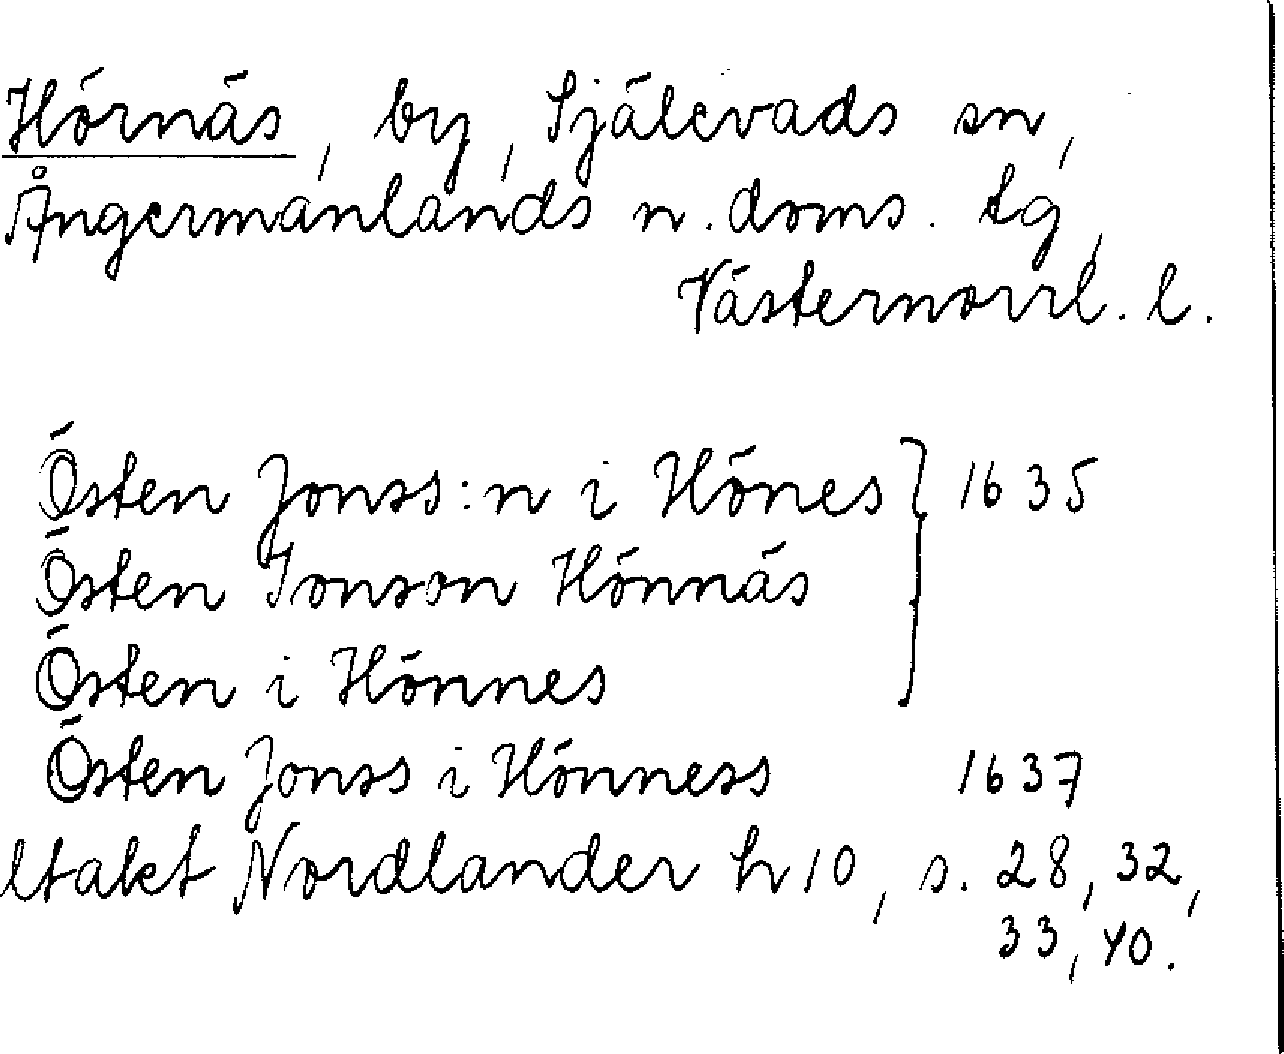 Hörnäs, by, Själevads sn,
Ångermanlands n. doms. tg,
Västernorrl. l.
Östen Jonss:n i Hönes } 1635
Östen Jonson Hönnäs
Östen i Hönnes
Östen Jonss i Hönness 1637
Utakt Nordlander h 10, s. 28, 32,
33, 40.